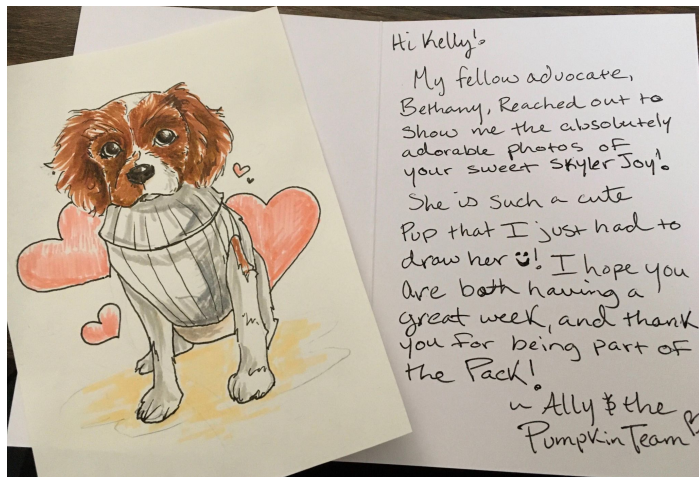 Hi Kelly!
My fellow advocate,
Bethany, Reached out to
show me the absolutely
adorable photos of
your sweet Skyler Joy!
She is such a cute
Pup that I just had to
draw her !  I hope you
are both having a
great week, and thank
you for being part of
the Pack!
~ Ally & the
Pumpkin Team